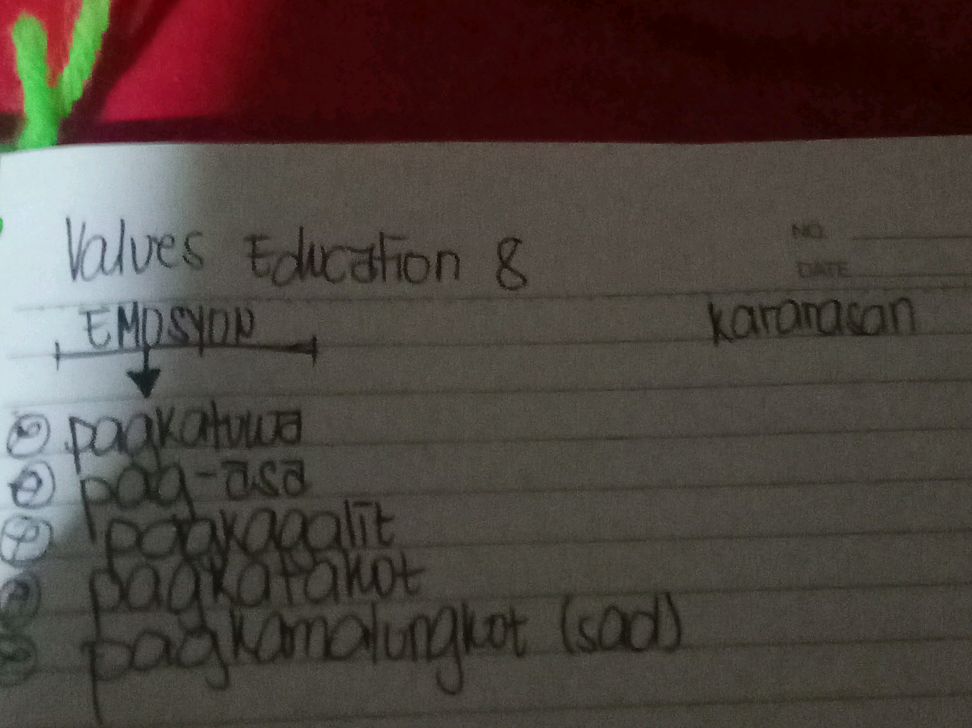 Values Education 8
NO.
DATE
EMOSYON
kararasan
pagkatuwa
pag-asa
pagkagalit
pagkatakot
pagkamalungkot (sad)